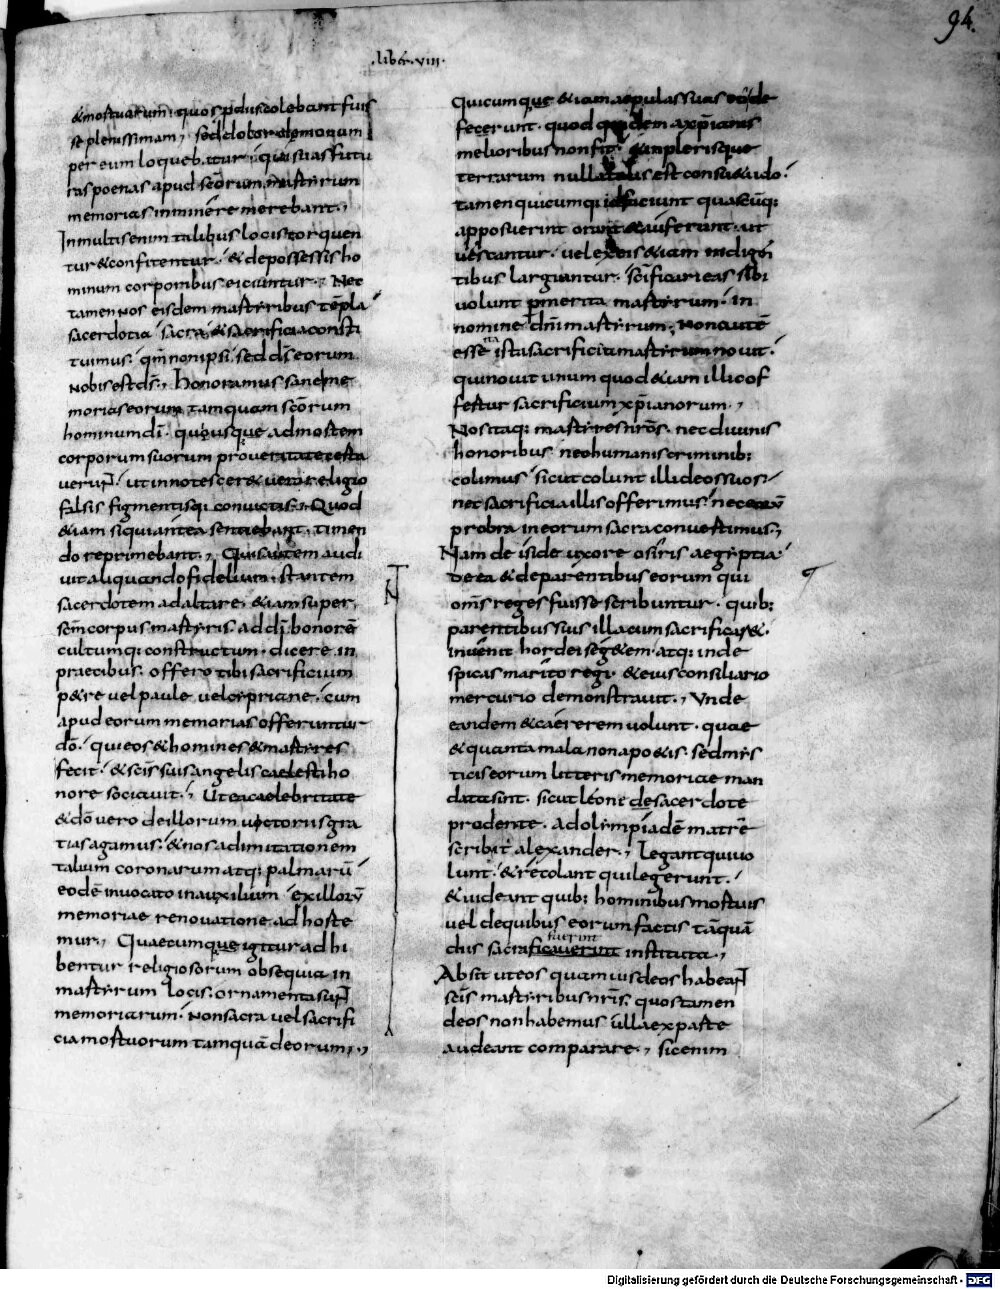 94.
.liber.viii.
& mortuarum; quos p̄dus& olebant fuis
se plenissimam, sed dolor demonum
per eum loquebatur, qui suas futu
ras poenas apud sc̄orum martyrum
memorias inminere merebant,
In multis enim talibus locis torquen
tur & confitentur, & de possessis ho
minum corporibus eiciuntur, Nec
tamen nos eisdem martyribus templa
sacerdotia sacra & sacrificia consti
tuimus, qm̄ non ipsi sed d̄s eorum
nobis est d̄s, Honoramus sane me
morias eorum tamquam sc̄orum
hominum dī, qui usque ad mortem
corporum suorum pro veritate certa
verunt, ut innotescer& vera religio
falsis figmentisq; convictis, Quod
&iam siqui antea sentiebant, timen
do reprimebant, Quis autem audi
vit aliquando fidelium, stantem
sacerdotem ad altare, &iam super
sc̄m corpus martyris, ad dī honorē
cultumq; constructum, dicere in
praecibus, offero tibi sacrificium
p&re vel paule vel cypriane, cum
apud eorum memorias offeruntur
dō, qui eos & homines & martyres
fecit, & sc̄is suis angelis caelesti ho
nore sociavit, Ut ea caelebritate
& dō vero de illorum victoriis gra
tias agamus, & nos ad imitationem
talium coronarum atq; palmarū
eodē invocato in auxilium ex illorum
memoriae renovatione adhorte
mur, Quaecumque igitur adhi
bentur religiosorum obsequia in
martyrum locis, ornamenta sunt
memoriarum, non sacra vel sacrifi
cia mortuorum tamquā deorum,,
quicumque &iam aepulas suas eo de
fecerunt, quod quidem a xp̄ianis
melioribus non fit, & in plerisque
terrarum nulla talis est consu&udo,
tamen quicumq; id faciunt quas cūq;
apposuerint orant & auferunt, ut
vescantur, vel ex eis &iam indigen
tibus largiantur, sc̄ificari eas sibi
volunt p merita martyrum, in
nomine dn̄i martyrum, Non autē
esse ista sacrificia martyrum novit,
qui novit unum quod &iam illic of
fertur sacrificium xp̄ianorum,
Nos itaq; martyres nr̄os, nec divinis
honoribus nec humanis criminib;
colimus sicut colunt illi deos suos,
nec sacrificia illis offerimus, nec eorum
probra in eorum sacra convertimus,
Nam de iside uxore osiris aegyptia
dea & de parentibus eorum qui
om̄s reges fuisse scribuntur, quib;
parentibus suis illa cum sacrificar&,
invenit hordei seg&em, atq; inde
spicas marito regi, & eius consiliario
mercurio demonstravit, Unde
eandem & caererem volunt, quae
& quanta mala non apo&is, sed mys
ticis eorum litteris memoriae man
data sint, sicut leone de sacerdote
prodente, ad olympiadē matrē
scribit alexander, Legant qui vo
lunt, & recolant qui legerunt,
& videant quib; hominibus mortuis
vel de quibus eorum factis tāquā
diis sacra fuerint instituta,
Absit ut eos quamvis deos habeant
sc̄is martyribus nr̄is, quos tamen
deos non habemus ulla ex parte
audeant comparare, sic enim
Digitalisierung gefördert durch die Deutsche Forschungsgemeinschaft - DFG